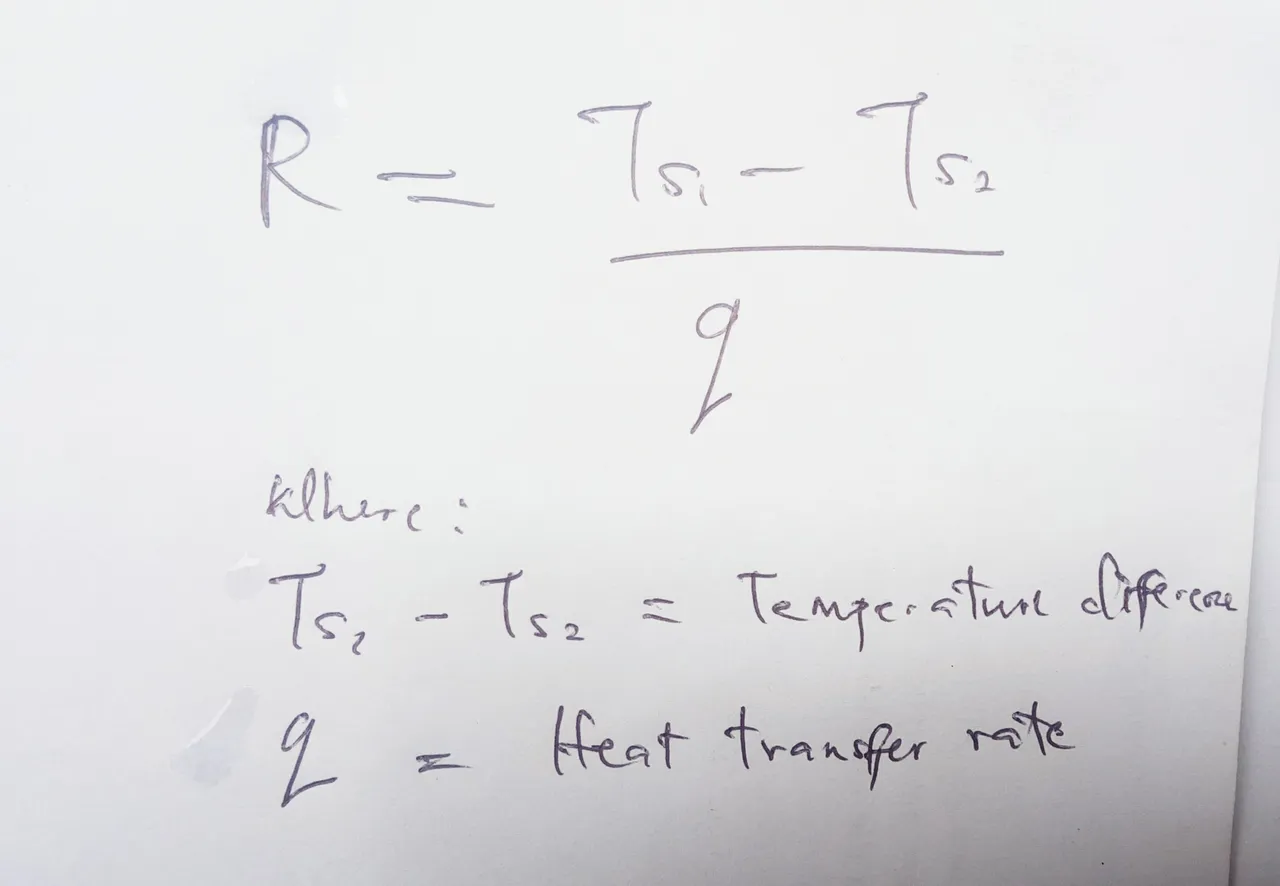 R = Ts1 - Ts2
q
Where:
Ts1 - Ts2 = Temperature diference
q = Heat transfer rate